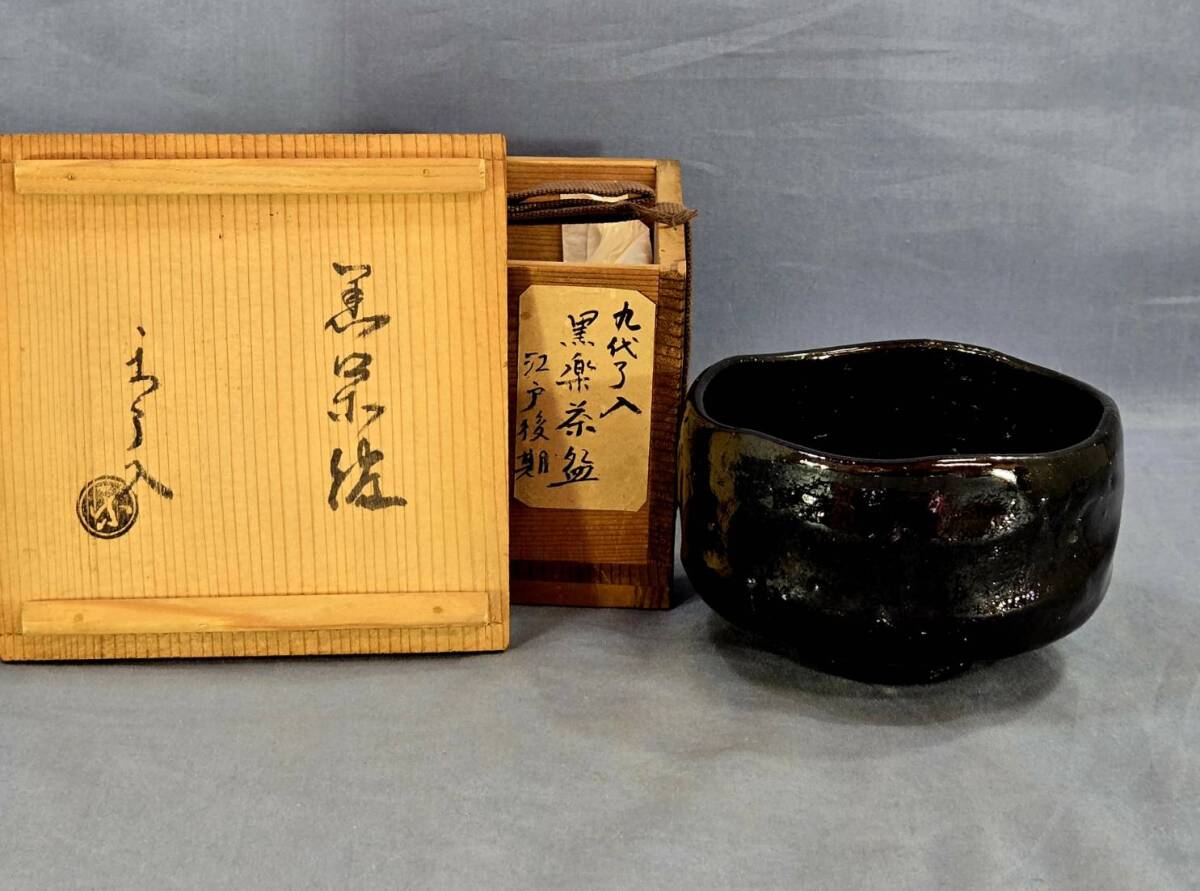 黒楽茶碗
了入
九代了入
黒楽茶盌
江戸後期